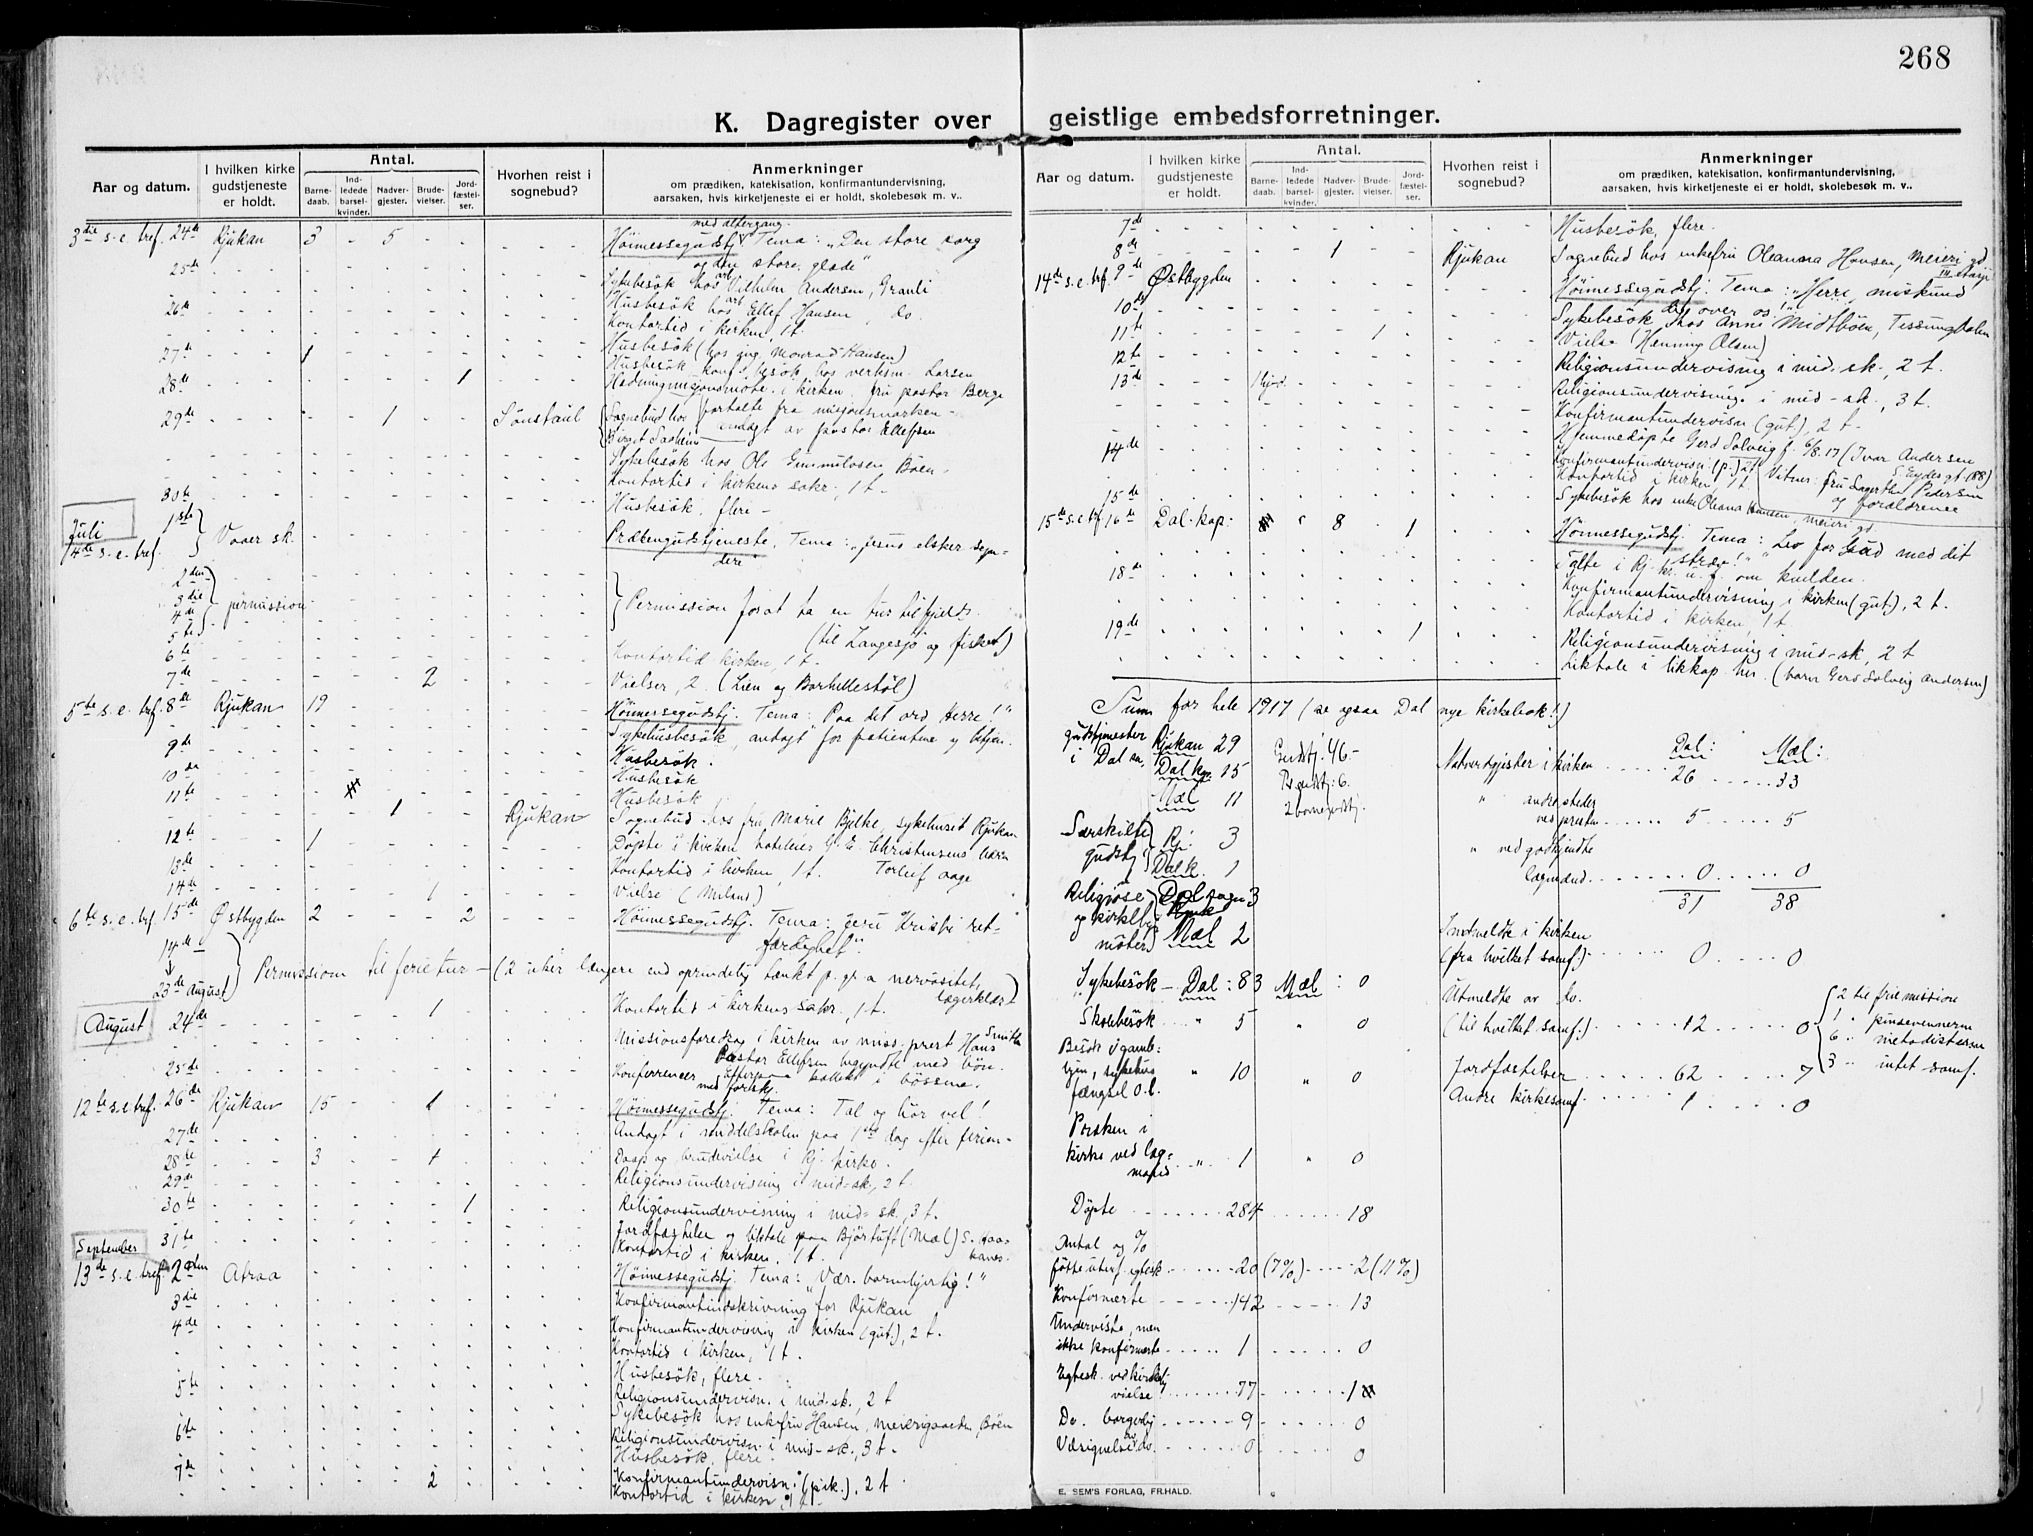 268
K. Dagregister over geistlige embedsforretninger.
Aar og datum. I hvilken kirke gudstjeneste er holdt. Antal. Hvorhen reist i sognebud? Anmerkninger
Barnedaab. Indledede barselkvinder. Nadvergjester. Brudevielser. Jordfæstelser.
om prædiken, katekisation, konfirmantundervisning,
aarsaken, hvis kirketjeneste ei er holdt, skolebesøk m. v..
med altergang
3die s. e. tref. 24de Rjukan 3 - 5 Höimessegudstj. Tema: "Den store sorg
og den store glæde"
25de Sykebesök hos arb. Vilhelm Andersen, Grauli
26de Husbesök hos arb. Ellef Hansen do.
Kontortid i kirken, 1 t.
27de 1 Husbesök (hos ing. Monrad Hansen)
28de 1 Husbesök
Hedningmisjonsmöte i kirken. fru pastor Berge
29de 1 Sönstaul Sognebud hos fortalte fra misjonsmarken -
Birgit Saaheim andagt av pastor Ellefsen
Sykebesök hos Ole Gunnulvsen Böen -
Kontortid i kirkens sakr., 1 t -
30te Husbesök, flere -
Juli 1ste Vaaer sk. Præken gudstjeneste. Tema: "Jesus elsker
4de s. e. tref.
2den
3die permission Permission forat ta en tur tilfjelds.
4de
5te (til Langesjø og fisket)
6te Kontortid kirken, 1 t.
7de 2 Vielser, 2. (Lien og Borhellestöl)
5te s. e. tref. 8de Rjukan 19 Höimessegudstj. Tema: "Paa det ord Herre!"
Sykehusbesök, andagt for patienterne og betjen.
9de Husbesök.
10de Husbesök
11te Husbesök
1 Rjukan Sognebud hos fru Marie Bjelke, sykehuset Rjukan
12te 1 Döpte i kirken hoteleier G. E. Christensens barn
13de Kontortid i kirken, 1 t. Torleif Aage
14de 1 Vielse (Miland)
6te s. e. tref. 15de Östbygden 2 - - - 2 Höimessegudstj. Tema: Jesu Kristi ret-
færdighet".
17de
23de August Permission til ferietur - (2 uker længere end oprindelig tænkt p. gr. a nervösitet,
lægerklær.)
August 24de 1 Kontortid i kirkens sakr., 1 t.
Missionsforedrag i kirken av miss. prest Hans Smith
Pastor Ellefsen begyndte med bön.
25de Konferrencer kollekt i bössene.
12te s. e. tref. 26de Rjukan 15 - - 1 Höimessegudstj. Tema: Tal og hör vel!
27de Andagt i middelskolen paa 1ste dag efter ferien -
28de 3 - - 1 Daap og brudevielse i Rj. kirke.
29de Religionsundervisning i mid-sk., 2 t.
30te 1 Religionsundervisning i mid-sk., 3 t.
31te Jordfæstelse og liktale paa Björtuft (Mæl)
Kontortid i kirken, 1 t.
September
13de s. e. tref. 2den Atraa Höimessegudstj. Tema: "Vær barmhjertig!"
3die Konfirmantindskrivning for Rjukan
4de Konfirmantundervisning i kirken (gut.), 2 t.
Kontortid i kirken, 1 t.
Husbesök, flere.
5te Religionsundervisn. i mid.sk., 2 t
Sykebesök hos enkefru Hansen, meierigaarden, Böen
6te Religionsundervisn. i mid-sk., 3 t.
Husbesök, flere.
7de 2 Konfirmantundervisn. (pik.), 2 t
Kontortid i kirken, 1 t.
Aar og datum. I hvilken kirke gudstjeneste er holdt. Antal. Hvorhen reist i sognebud? Anmerkninger
Barnedaab. Indledede barselkvinder. Nadvergjester. Brudevielser. Jordfæstelser.
om prædiken, katekisation, konfirmantundervisning,
aarsaken, hvis kirketjeneste ei er holdt, skolebesøk m. v..
7de Husbesök, flere.
8de 1 Rjukan Sognebud hos enkefru Oleanna Hansen, Meieri gd.
III etasje
14de s. e. tref. 9de Østbygden Höimessegudstj. Tema: "Herre miskund
dig over os!"
10de Sykebesök hos Anne Midtböen, Tessungdalen
11te 1 Vielse (Henning Olsen)
12te Religionsundervisning i mid-sk., 2 t.
13de 1 hjd. Religionsundervisning i mid-sk., 3 t.
Konfirmantundervisn. (gut.), 2 t -
Hjemmedöpte Gerd Solveig f. 6/8.17 (Ivar Andersen
14de Konfirmantundervisn. (p.) 2 t S. Eydesgt. 88)
Kontortid i kirken 1 t Vitner: fru Pedersen
og forældrene
15de Sykebesök hos enke Oleana Hansen, meieri gd.
15de s. e. tref. 16de Dal. kap. 8 - 1 Höimessegudstj. Tema: "Lev for Gud med dit
stræv!"
i Rj. k. u. f. om kvelden.
18de Konfirmantundervisning i kirken (gut), 2 t.
Kontortid i kirken, 1 t
19de 1 Religionsundervisning i mid-sk, 2 t
Liktale i likkap. her. (barn Gerd Solveig Andersen)
Sum for hele 1917 (se ogsaa Dal nye kirkebok!)
gudstjenester Rjukan 29 Gudstj. 46 -
i Dal sn. Dal kp. 15 6.
Mæl 11 2 barnegudstj.
Særskilte gudstj. Rj. 3
Dal k. 1
Religiöse og kirkelige möter Dal sogn 3
Mæl 2
Sykebesök - Dal: 83 Mæl: 0
Skolebesök " 5 " 0
Besök i gamlehjem, sykehus fængsel o. l. " 10 " 0
Præken i
kirke ved læg-
mænd " 1 " 0
Döpte 284 18
Antal og %
födte utenf. egtesk. 20 (7%) 2 (11%)
Konfirmerte 142 13
Underviste, men
ikke konfirmerte 1 0
Egtesk. ved kirkelig
vielse 77 1
Do. borgerlig 9 0
Velsignelse av do. 0 0
Dal: Mæl:
Natverdgjester i kirken 26 33
" andre steder
ved presten 5 5
" ved godkjendte
lægmænd 0 0
31 38
Indmeldte i kirken
(fra hvilket samf.) 0 0
Utmeldte av do.
(til hvilket samf.) 12 0
2 til frie missione
1 " pinsevennerne
6 " metodisterne
3 " intet samf.
Jordfæstelser 62 7
Andre kirkesamf. 1 0
E. SEM'S FORLAG, FR.HALD.